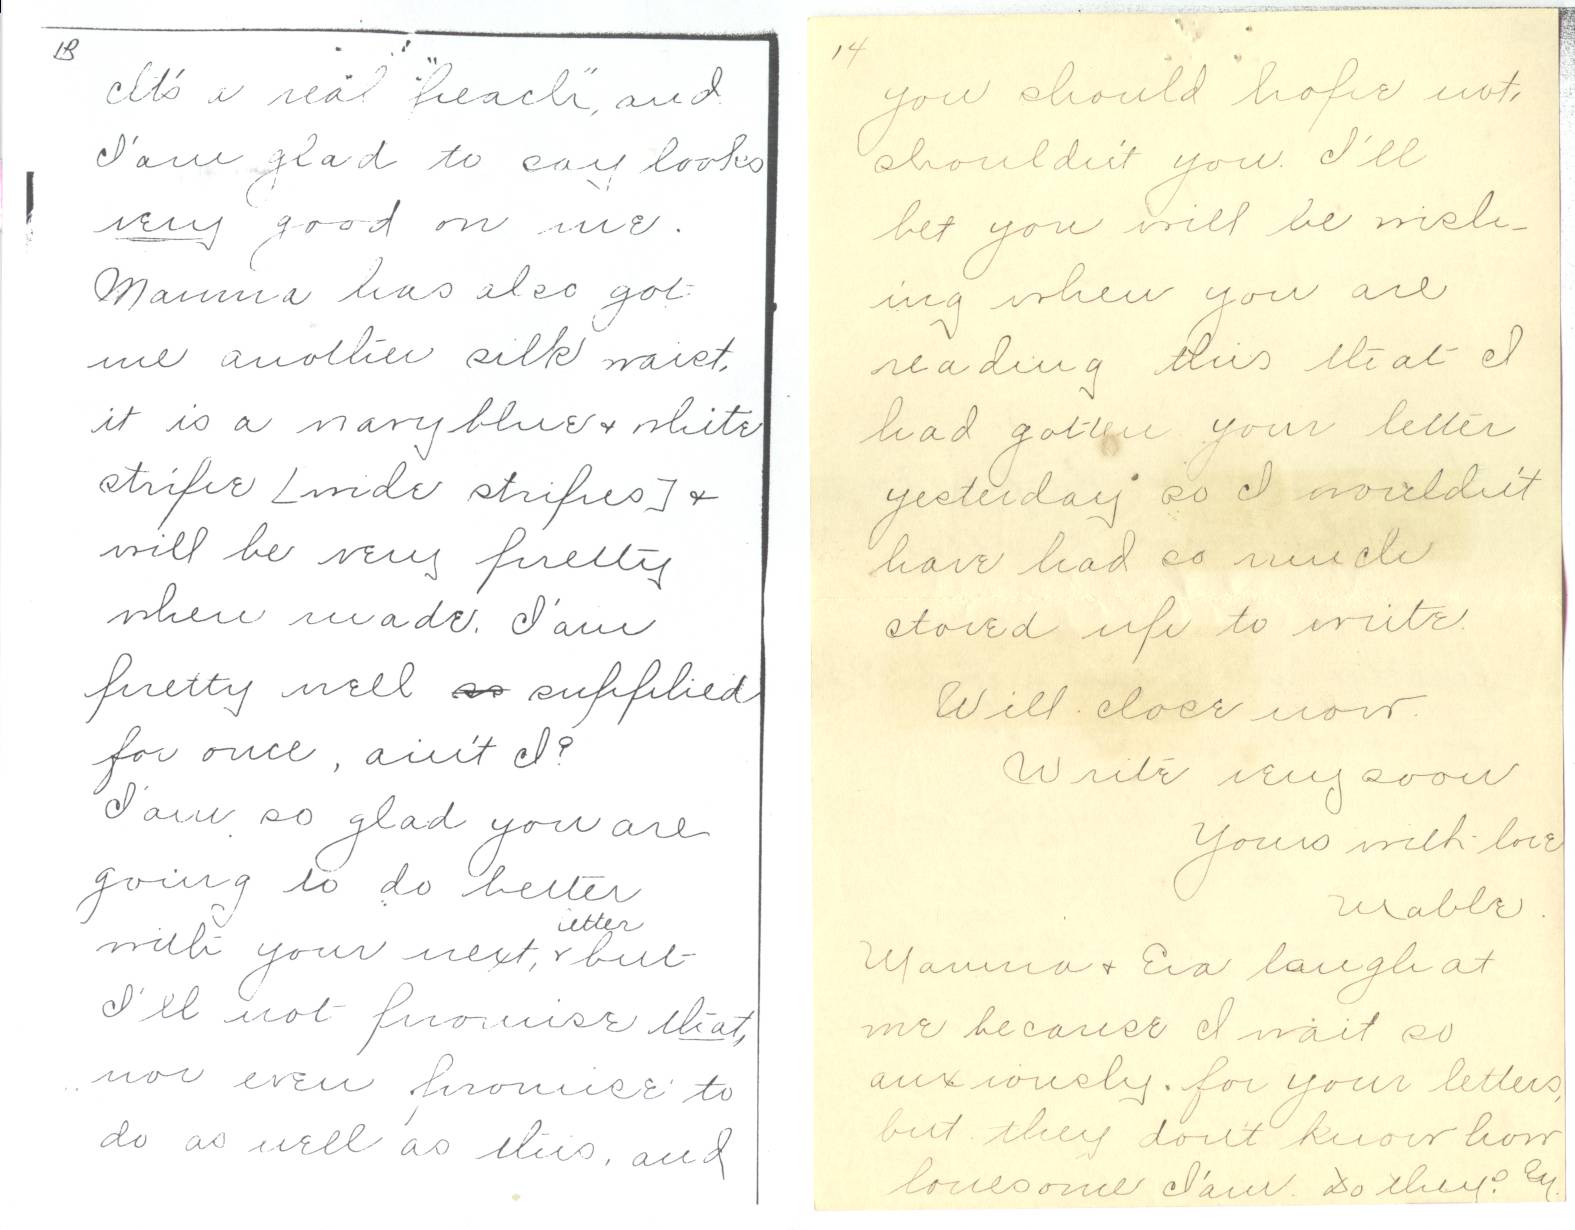 13
It's a real "peach", and
I'am glad to say looks
very good on me.
Mamma has also got
me another silk waist,
it is a navy blue + white
stripe [wide stripes] +
will be very pretty
when made. I'am
pretty well so supplied
for once, ain't I?
I'am so glad you are
going to do better
letter
with your next, + but
I'll not promise that,
nor even promise to
do as well as this, and
14
you should hope not,
shouldn't you. I'll
bet you will be wish-
ing when you are
reading this that I
had gotten your letter
yesterday so I wouldn't
have had so much
stored up to write.
Will close now.
Write very soon
Yours with love
Mable.
Mamma + Eva laugh at
me because I wait so
anxiously. for your letters,
but they don't know how
lonesome I'am. Do they?